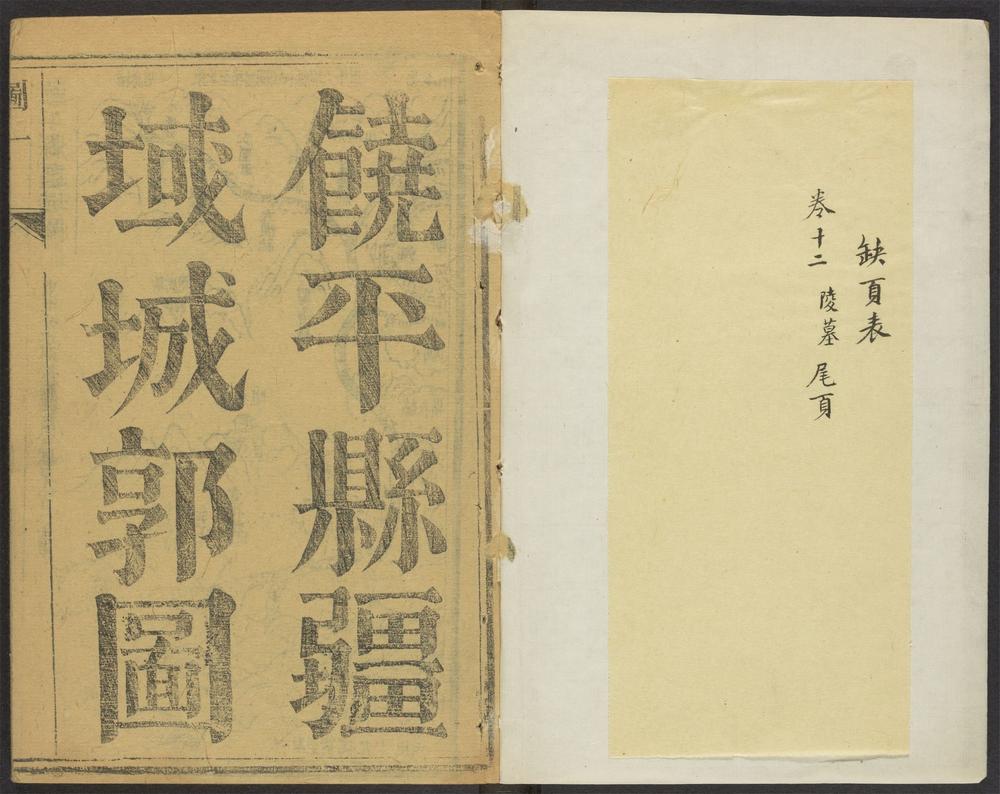 缺頁表
卷十二 陵墓 尾頁
饒平縣疆
域城郭圖
圖一